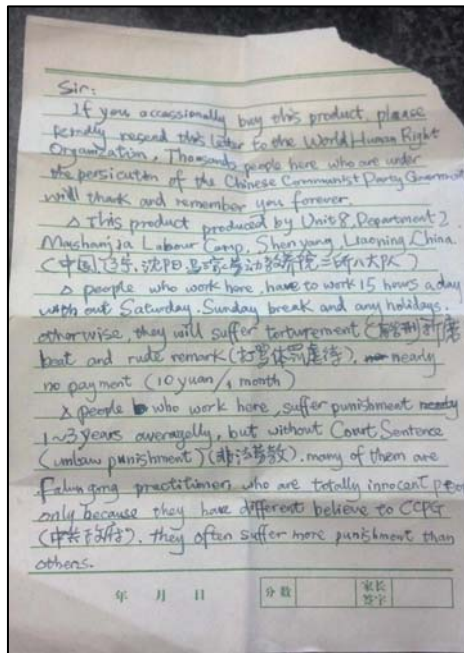 Sir:
If you occassionally buy this product, please
kindly resend this letter to the World Human Right
Organization. Thousands people here who are under
the persicution of the Chinese Communist Party Government
will thank and remember you forever.
This product produced by Unit 8, Department 2,
Mashanjia Labour Camp, Shenyang, Liaoning, China.
(中国,辽宁,沈阳,马三家劳动教养院二所八大队)
people who work here, have to work 15 hours a day
with out Saturday, Sunday break and any holidays,
otherwise, they will suffer torturement
beat and rude remark (打骂体罚虐待). nearly
no payment (10 yuan/1 month)
people who work here, suffer punishment
1~3 years averagelly, but without Court Sentence
(unlaw punishment) (非法劳教). many of them are
Falun gong practitioner, who are totally innocent
only because they have different believe to CCPG
(中共政府). they often suffer more punishment than
others.
年 月 日 分数 家长签字